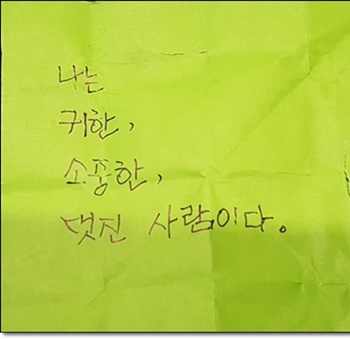 나는
귀한,
소중한,
멋진 사람이다.